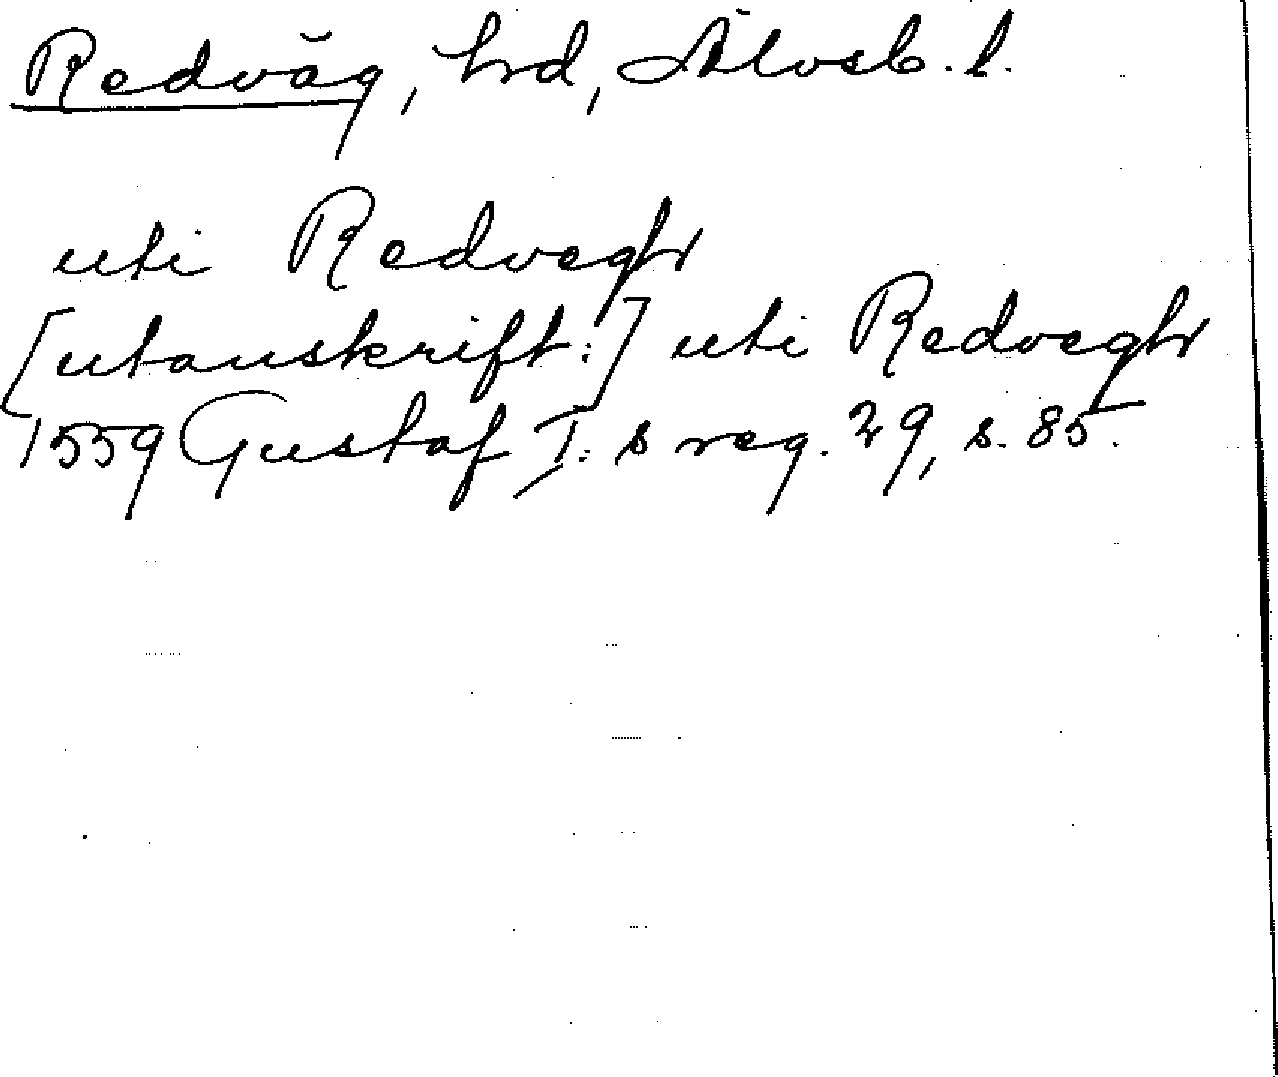 Redväg, hrd, Älvsb. l.
uti Redvegh
[utanskrift:] uti Redvegh
1559 Gustaf I:s reg. 29, s. 85.